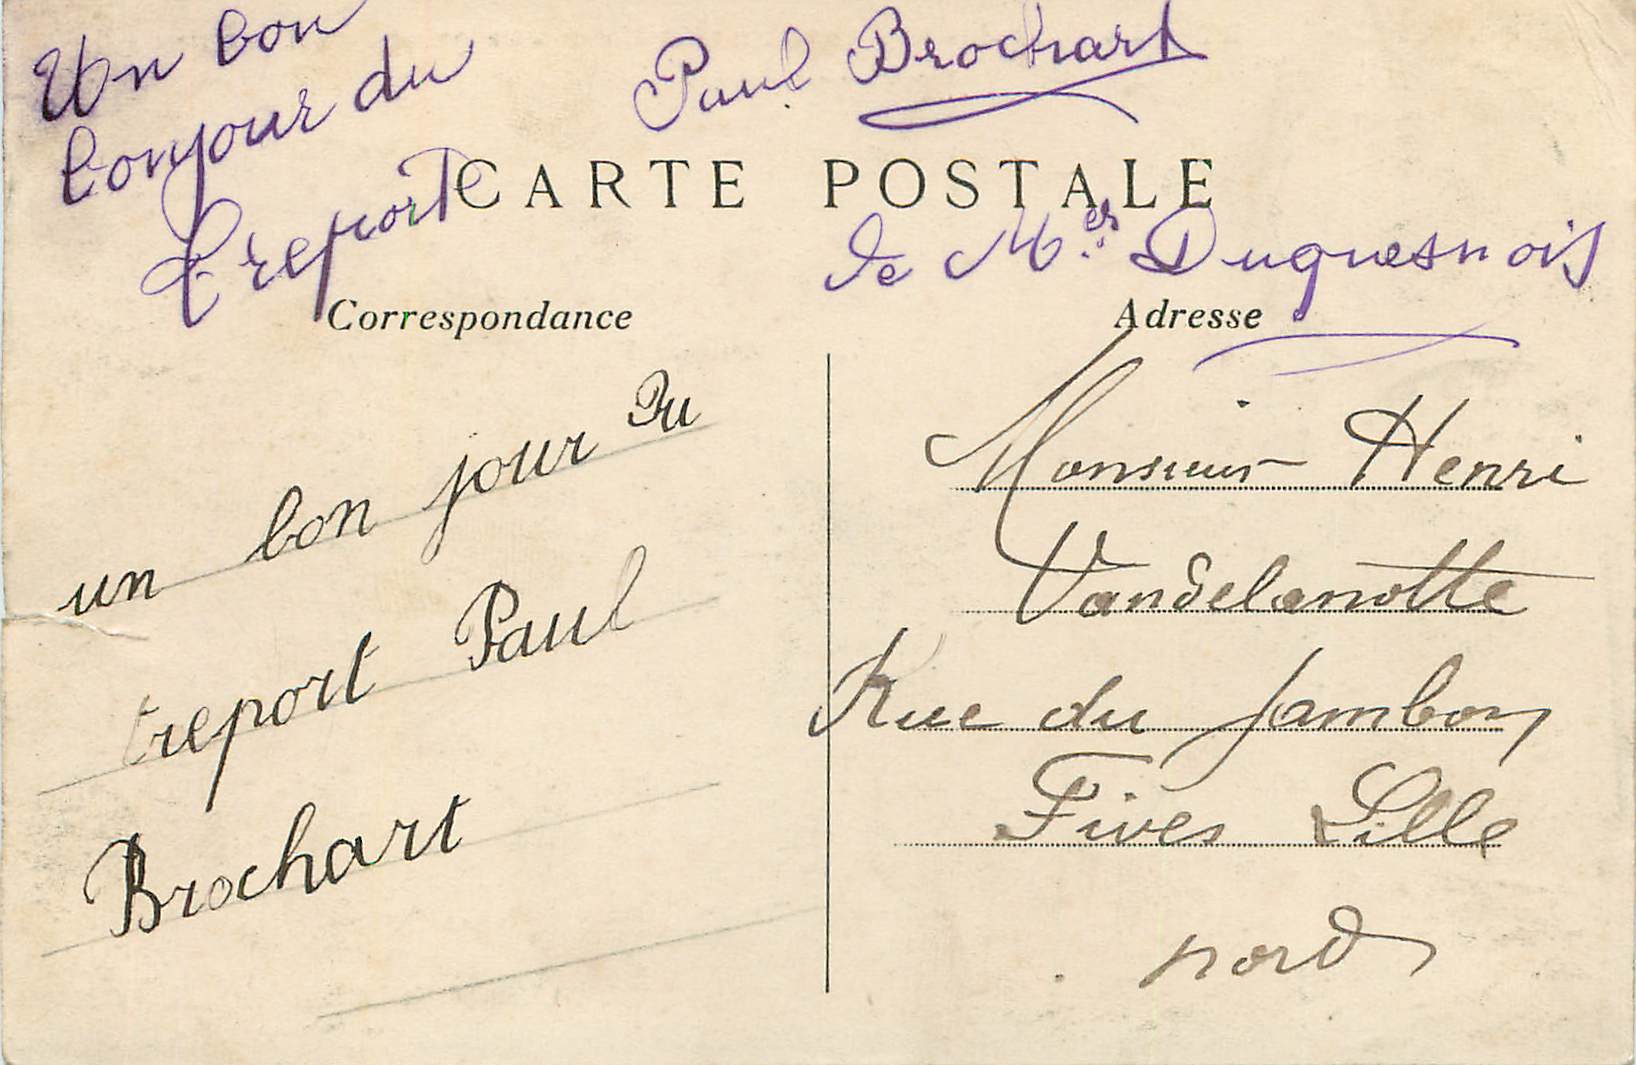 Un bon
bonjour du
Treport
Paul Brochart
CARTE POSTALE
de Mer Duquesnois
Correspondance
Adresse
un bon jour Du
treport Paul
Brochart
Monsieur Henri
Vandelanotte
Rue du Jambon
Fives Lille
nord